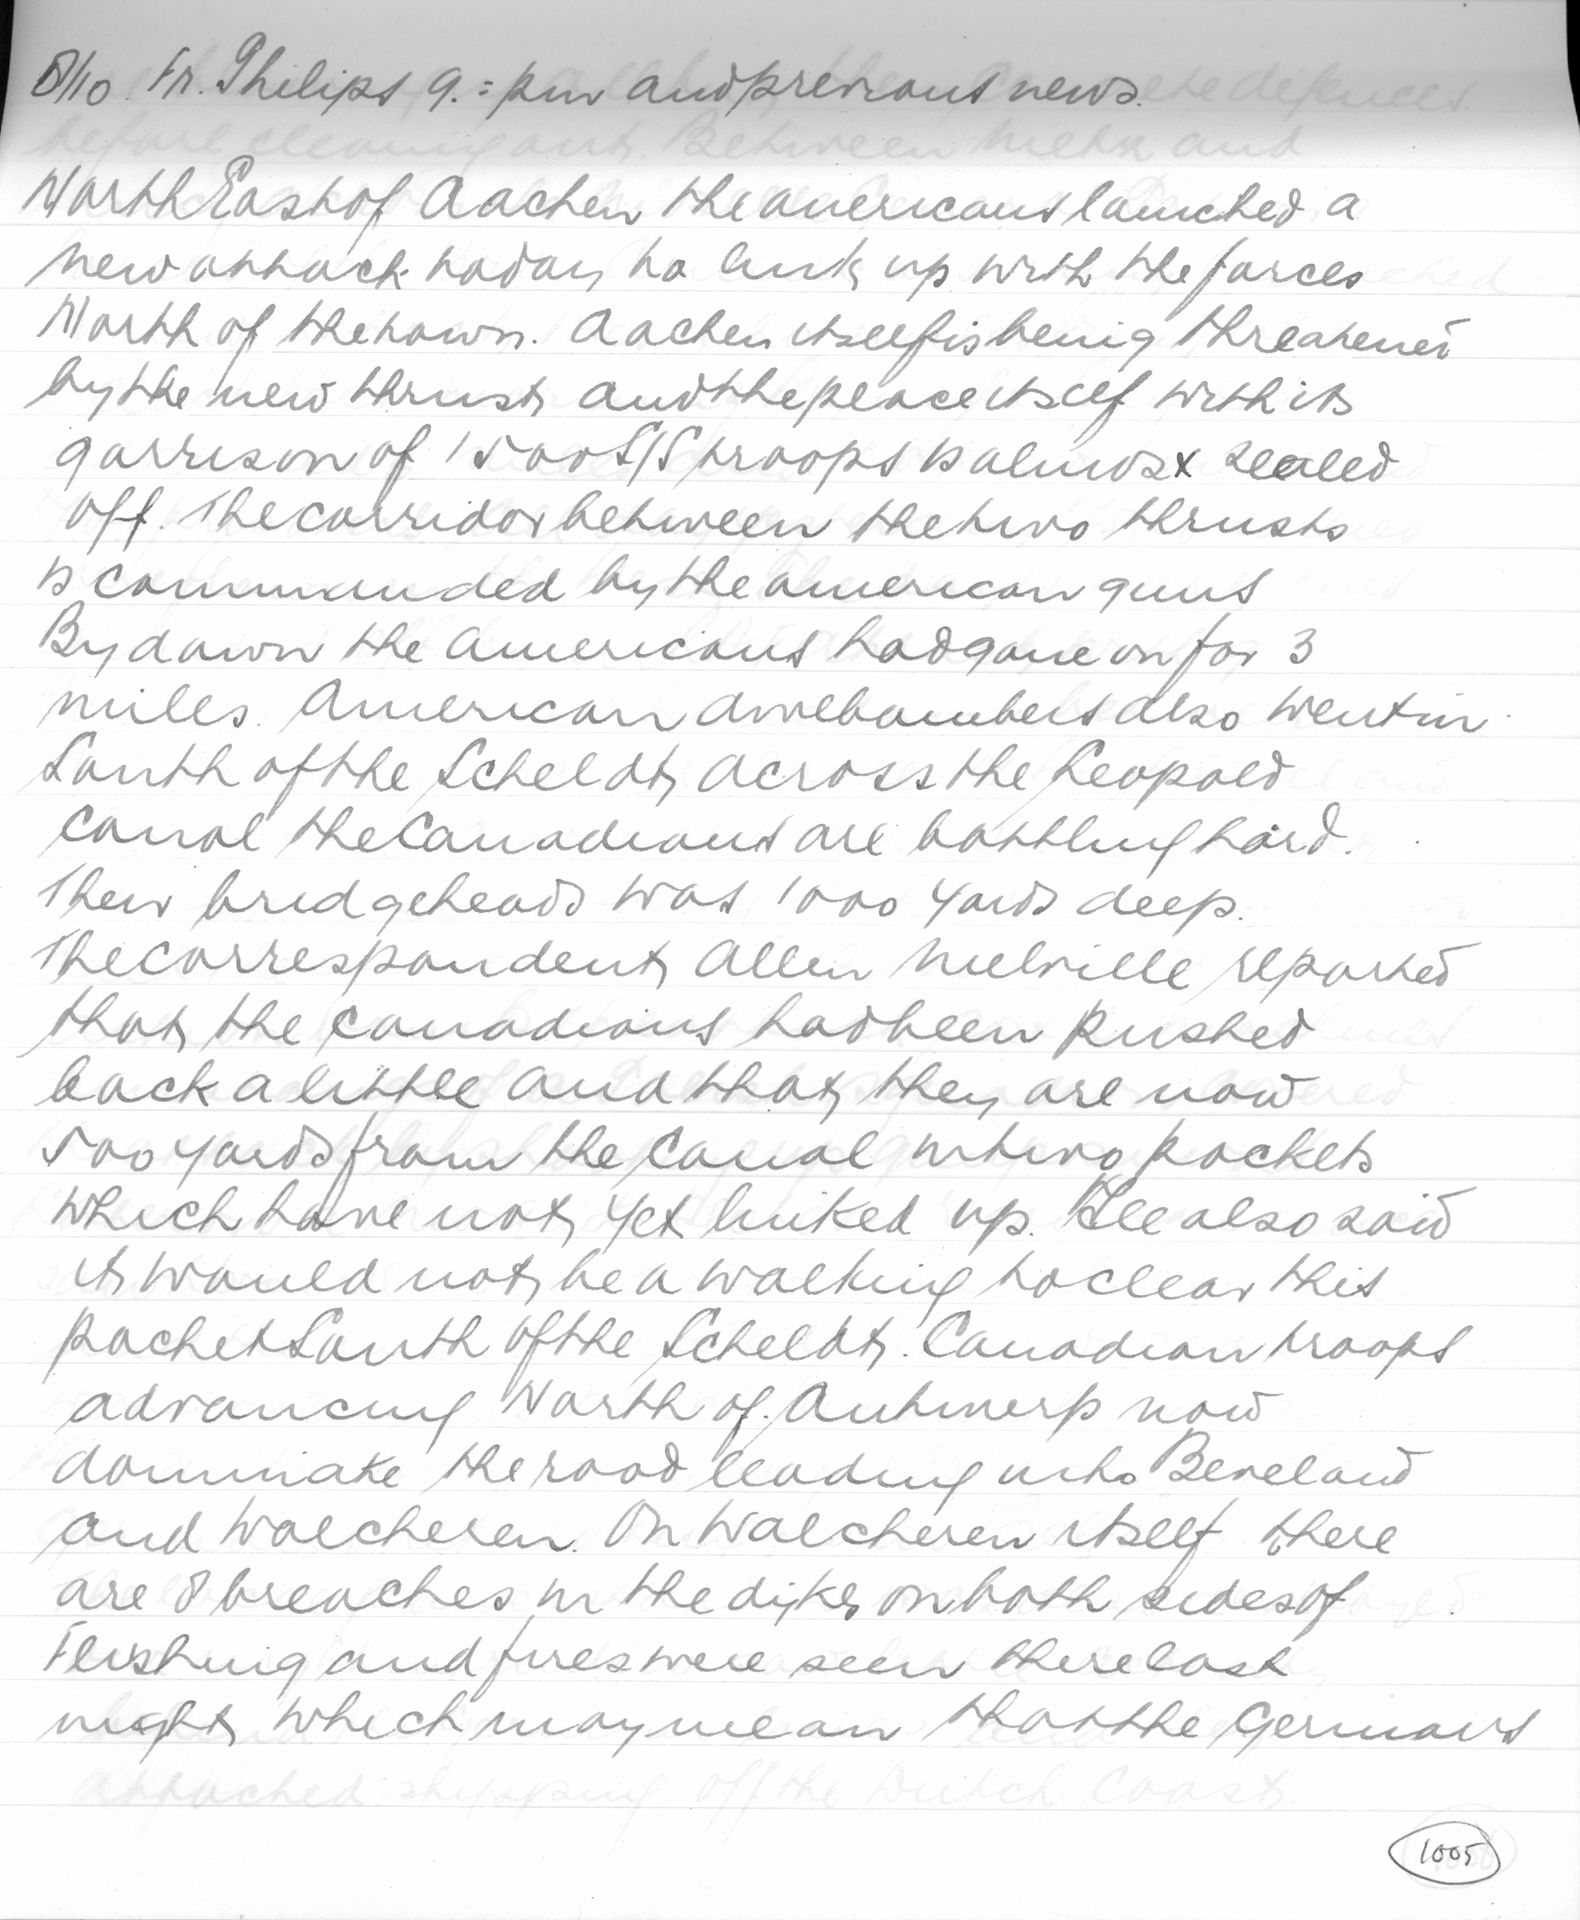 8/10. Fr. Philips 9.= pm and previous news.
North East of Aachen the americans launched a
new attack today to link up with the forces
North of the town. Aachen itself is being threatened
by the new thrust and the place itself with its
garrison of 1500 S/S troops is almost sealed
off. The corridor between the two thrusts
is commanded by the american guns
By dawn the Americans had gone on for 3
miles. American divebombers also went in.
South of the Scheldt across the Leopold
Canal the Canadians are battling hard.
Their bridgeheads was 1000 yards deep.
The correspondent Allen Melville reported
that the Canadians had been pushed
back a little and that they are now
500 yards from the Canal in two pockets
which have not yet linked up. He also said
it would not be a walking to clear this
pocket South of the Scheldt. Canadian troops
advancing North of Antwerp now
dominate the road leading into Beveland
and Walcheren. On Walcheren itself there
are 8 breaches in the dyke on both sides of
Flushing and fires were seen there last
night which may mean that the Germans
1005